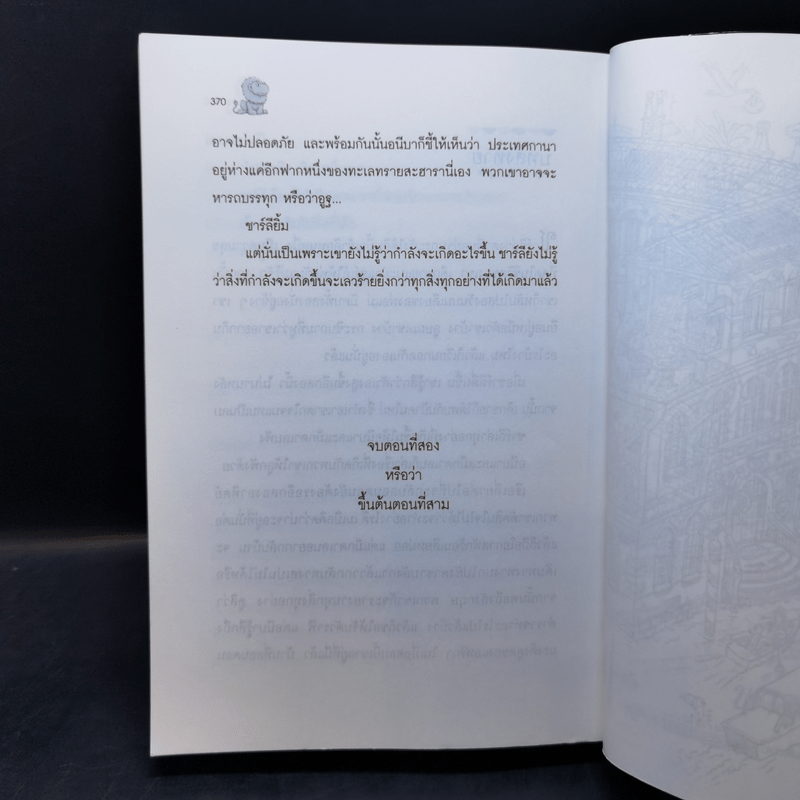 370
อาจไม่ปลอดภัย และพร้อมกันนั้นอนีบาก็ชี้ให้เห็นว่า ประเทศกานา
อยู่ห่างแค่อีกฟากหนึ่งของทะเลทรายสะฮารานี่เอง พวกเขาอาจจะ
หารถบรรทุก หรือว่าอูฐ...
ชาร์ลียิ้ม
แต่นั่นเป็นเพราะเขายังไม่รู้ว่ากำลังจะเกิดอะไรขึ้น ชาร์ลียังไม่รู้
ว่าสิ่งที่กำลังจะเกิดขึ้นจะเลวร้ายยิ่งกว่าทุกสิ่งทุกอย่างที่ได้เกิดมาแล้ว
จบตอนที่สอง
หรือว่า
ขึ้นต้นตอนที่สาม